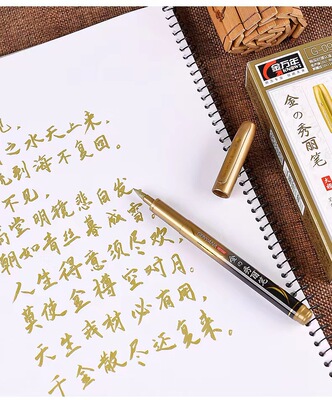 见，
之水天上来，
流到海不复回。
不见，
高堂明镜悲白发
朝如青丝暮成雪。
人生得意须尽欢，
莫使金樽空对月。
天生我材必有用，
千金散尽还复来。
金の秀丽笔
金万年
金の秀丽笔